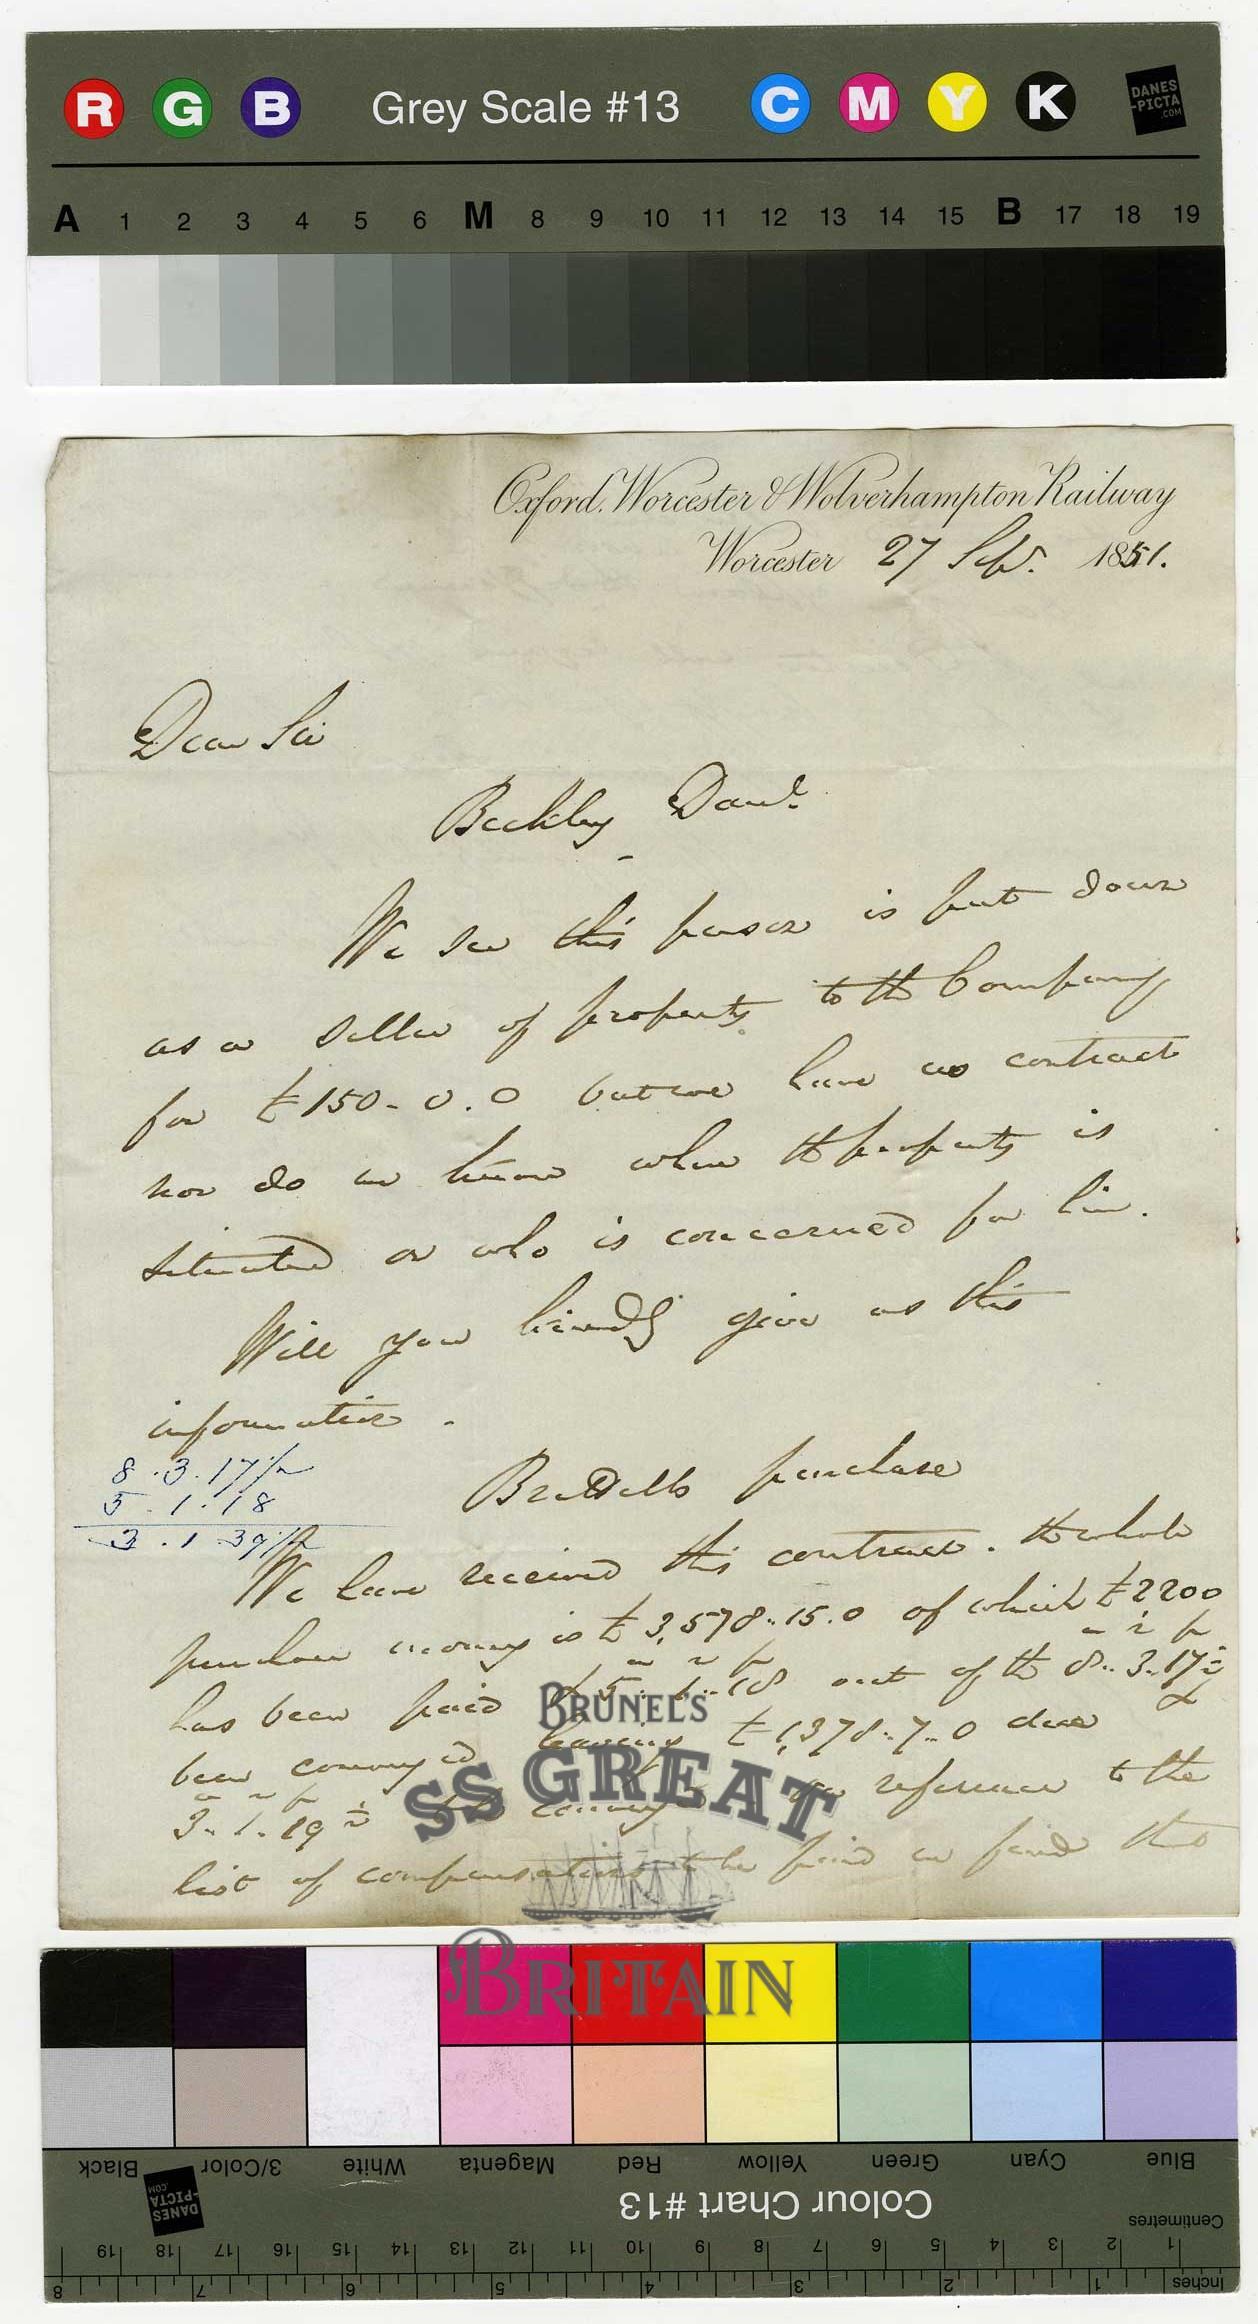 R G B Grey Scale #13 C M Y K DANES -PICTA .COM
A 1 2 3 4 5 6 M 8 9 10 11 12 13 14 15 B 17 18 19
Oxford, Worcester & Wolverhampton Railway
Worcester 27 Sep. 1851.
Dear Sir
Beckley Danl.
We see this person is put down
as a seller of property to the Company
for £150-0.0 but we have no contract
nor do we know where the property is
situated or who is concerned for him.
Will you kindly give us this
information.
8.3.17½
5.1.18
3.1.39½
purchase
We have received this contract. the whole
purchase money is £3,578..15.0 of which £2200
a r p
has been paid & 5..1..18 out of the 8..3..17½
a r p
been conveyed leaving £1,378..7..0 due
a r p
3..1..19½ to be conveyed on reference to the
list of compensations to be paid we find this
BRUNEL'S
SS GREAT
BRITAIN
Black 3/Color White Magenta Red Yellow Green Cyan Blue
DANES -PICTA .COM
Colour Chart #13
Centimetres
1 2 3 4 5 6 7 8 9 10 11 12 13 14 15 16 17 18 19
Inches 1 2 3 4 5 6 7 8